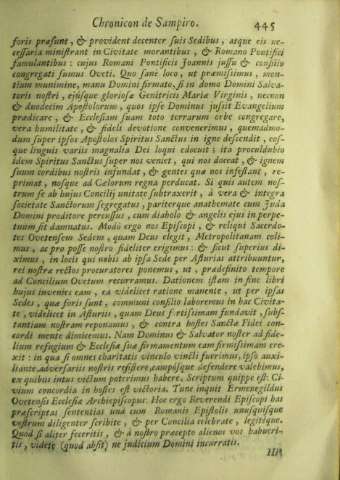 Chronicon de Sampiro. 445
foris præsunt, & provident decenter suis Sedibus, atque eis ne-
cessaria ministrant in Civitate morantibus, & Romano Pontifici
famulantibus: cujus Romani Pontificis Joannis jussu & consilio
congregati sumus Oveti. Quo sanè loco, ut præmisimus, mon-
tium munimine, manu Domini firmato, si in domo Domini Salva-
toris nostri, ejusque gloriosæ Genitricis Mariæ Virginis, necnon
& duodecim Apostolorum, quos ipse Dominus jussit Evangelium
prædicare, & Ecclesiam suam toto terrarum orbe congregare,
vera humilitate, & fideli devotione convenerimus, quemadmo-
dum super ipsos Apostolos Spiritus Sanctus in igne descendit, eos-
que linguis variis magnalia Dei loqui edocuit; ita proculdubio
idem Spiritus Sanctus super nos veniet, qui nos doceat, & ignem
suum cordibus nostris infundat, & gentes quæ nos infestant, re-
primat, nosque ad Cælorum regna perducat. Si quis autem nos-
trum se ab hujus Concilij unitate subtraxerit, à vera & integra
societate Sanctorum segregatus, pariterque anathemate cum Juda
Domini proditore percussus, cum diabolo & angelis ejus in perpe-
tuum sit damnatus. Modò ergo nos Episcopi, & reliqui Sacerdo-
tes Ovetensem Sedem, quam Deus elegit, Metropolitanam coli-
mus, ac pro posse nostro fideliter erigimus: & sicut superius di-
ximus, in locis qui nobis ab ipsa Sede per Asturias attribuuntur,
rei nostræ rectos procuratores ponemus, ut, prædefinito tempore
ad Concilium Ovetum recurramus. Dationem istam in fine libri
hujus invenies eam, ea videlicet ratione manente, ut per ipsas
Sedes, quæ foris sunt, communi consilio laboremus in hac Civita-
te, videlicet in Asturiis, quam Deus fortissimam fundavit, subs-
tantiam nostram reponamus, & contra hostes Sanctæ Fidei con-
cordi mente dimicemus. Nam Dominus & Salvator noster ad fide-
lium refugium & Ecclesiæ suæ firmamentum eam firmissimam ere-
xit: in qua si omnes charitatis vinculo vincti fuerimus, ipso auxi-
liante adversariis nostris resistere, campósque defendere valebimus,
ex quibus intus victum poterimus habere. Scriptum quippe est: Ci-
vium concordia in hostes est victoria. Tunc inquit Ermenegildus
Ovetensis Ecclesiæ Archiepiscopus. Hoc ergo Reverendi Episcopi has
præscriptas sententias unà cum Romanis Epistolis unusquisque
vestrum diligenter scribite, & per Concilia celebrate, legitéque.
Quod si aliter feceritis, & à nostro præcepto alienos vos habueri-
tis, videte (quod absit) ne judicium Domini incurratis.